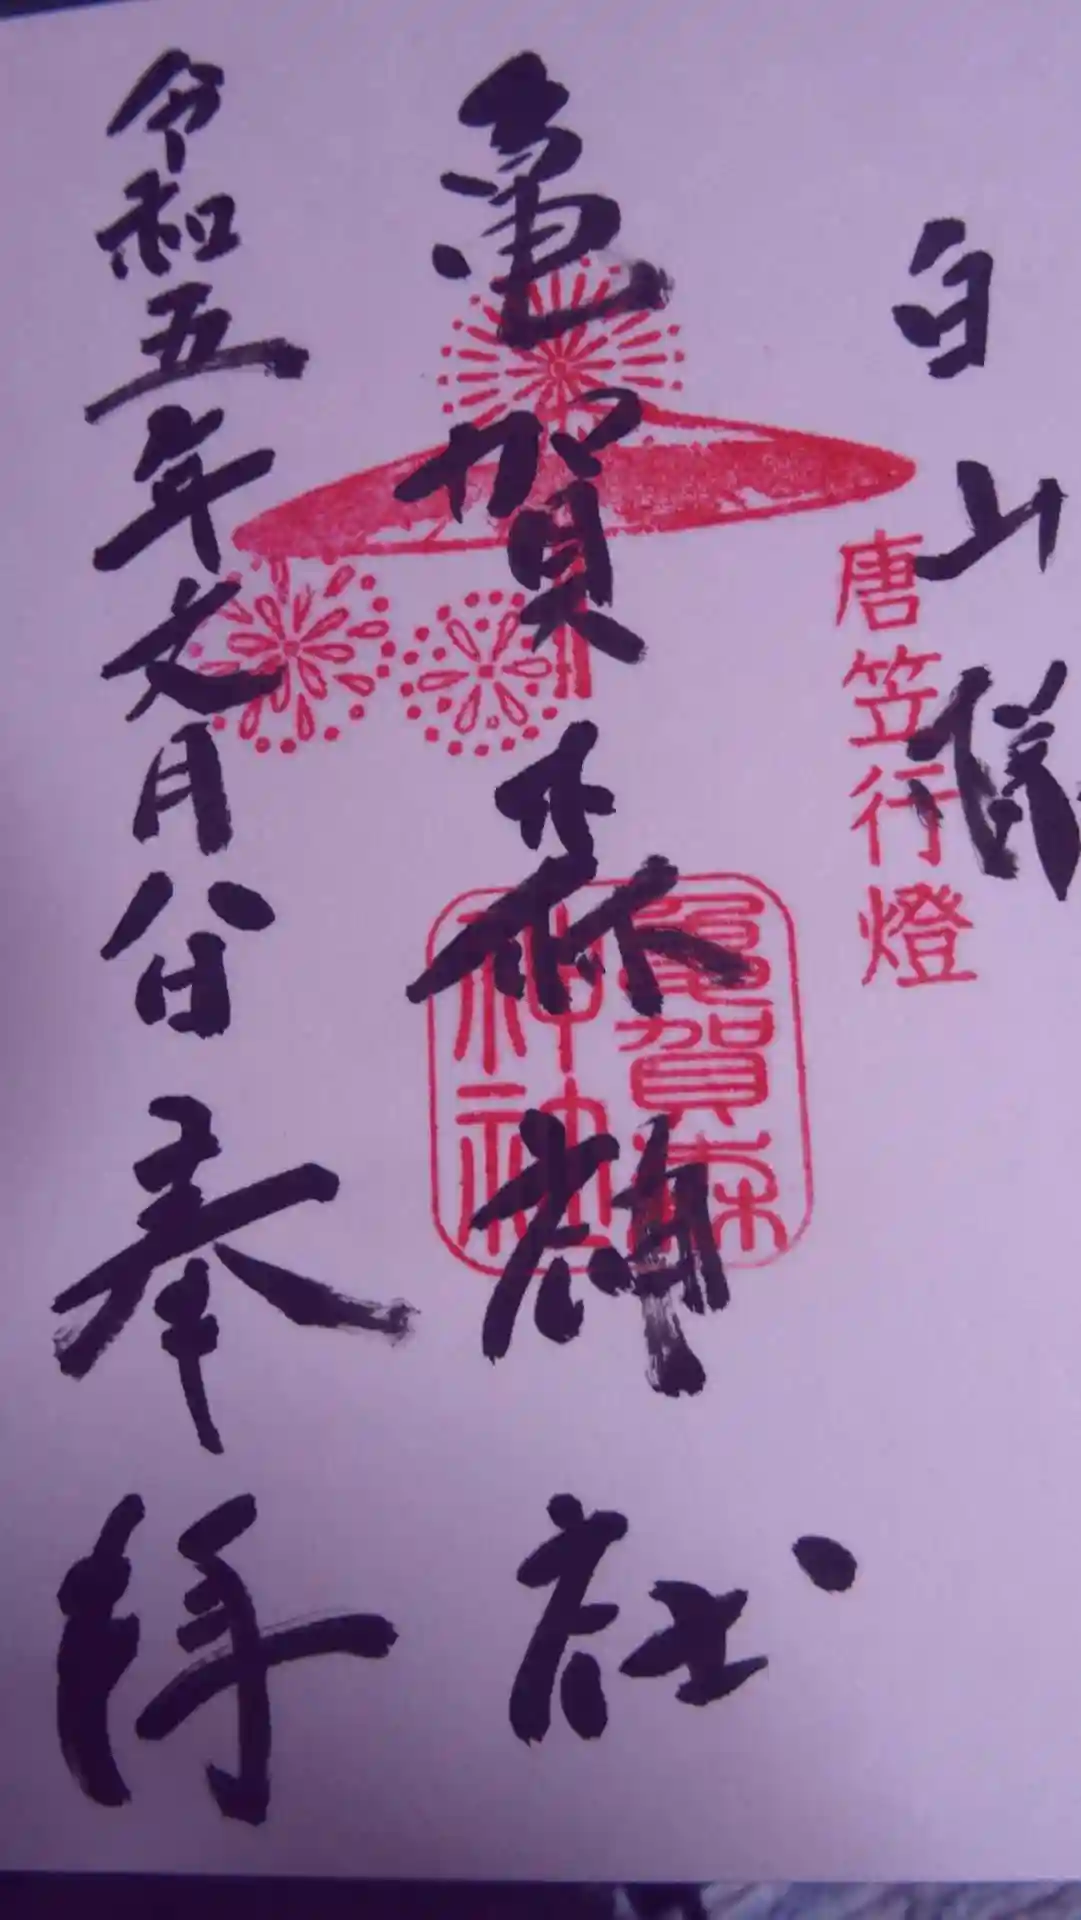 白山様
唐笠行燈
亀賀森神社
龜賀森
神社
令和五年文月八日 奉拝